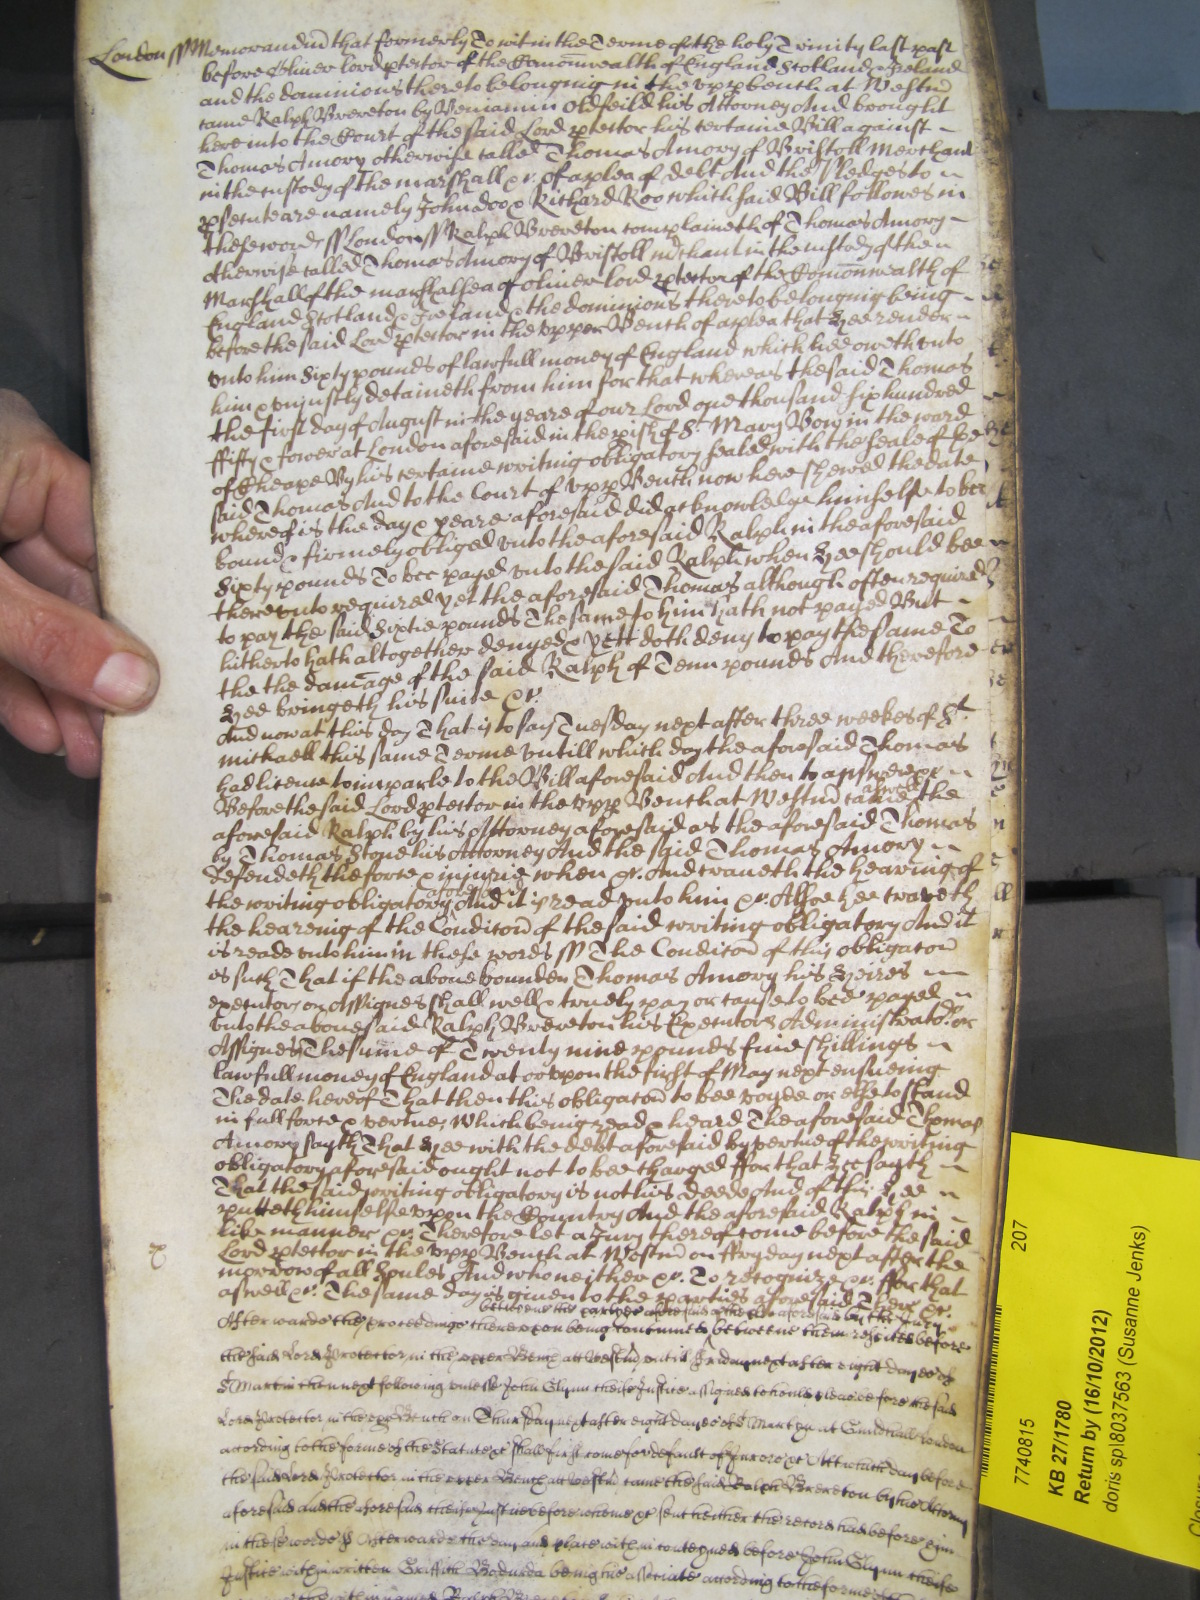 London ss Memorandũ that formerly To wit in the Terme of the holy Trinity last past
before Oliver lord ptector of the Comonwealth of England Scotland & Ireland
and the dominions thereto belonging in the vpp bench at Westm̃
came Ralph Brereton by Beniamin Oldfeild his Attorney And brought
here into the Court of the said Lord ptector his certaine Bill against
Thomas Amory otherwise called Thomas Amory of Bristoll Merchant
in the custody of the marshall &c. of a plea of debt And the Pledges to
psecute are namely John doo & Richard Roo which said Bill followes in
these words ss London ss Ralph Brereton complaineth of Thomas Amory
otherwise called Thomas Amory of Bristoll mchant in the custody of the
Marshall of the marshalsea of oliver lord ptector of the Comonwealth of
England Scotland & Ireland & the dominions thereto belonging being
before the said Lord ptector in the vpper Bench of a plea that Hee render
vnto him Sixty pounds of lawfull money of England which hee oweth vnto
him & vniustly detaineth from him for that whereas the said Thomas
the first day of August in the yeare of our Lord one thousand six hundred
ffifty & fower at London aforesaid in the pish of St Mary Bow in the ward
of Cheape By his certaine writing obligatory sealed with the seale of the
said Thomas And to the Court of vpp Bench now here shewed the date
whereof is the day & yeare aforesaid did acknowledge himselfe to bee
bound & firmely obliged vnto the aforesaid Ralph in the aforesaid
Sixty pounds To bee payed vnto the said Ralph when Hee should bee
therevnto required yet the aforesaid Thomas although often required
to pay the said Sixtie pounds The same to him hath not payed But
hitherto hath altogether denyed & yett doth deny to pay the same To
the the damage of the said Ralph of Tenn pounds And therefore
Hee bringeth his suite &c.
And now at this day That is to say Tuesday next after three weekes of St.
michaell this same Terme vntill which day the aforesaid Thomas
had licence to imparle to the Bill aforesaid And then to answere &c
Before the said Lord ptector in the vpp Bench at Westm̃ came aswell the
aforesaid Ralph by his Attorney aforesaid as the aforesaid Thomas
by Thomas Stone his Attorney And the said Thomas Amory
defendeth the force & iniurie when &c. And craveth the hearing of
the writing obligatory aforesaid And it is read vnto him &c. Alsoe hee craveth
the hearing of the Condicon of the said writing obligatory And it
is reade vnto him in these words ss The Condicon of this obligacon
is such That if the above bounden Thomas Amory his Heires
executors or Assignes shall well & truely pay or cause to bee payed
vnto the abovesaid Ralph Brereton his Executors Administrators or
Assignes The sume of Twenty nine pounds five shillings
lawfull money of England at or vpon the first of May next ensueing
The date hereof That then this obligacon to bee voyde or else to stand
in full force & vertue, Which being read & heard The aforesaid Thomas
Amory sayth That Hee with the debt aforesaid by vertue of the writing
obligatory aforesaid ought not to bee charged ffor that Hee sayth
That the said writing obligatory is not his deede And of this Hee
putteth himselfe vpon the Country And the aforesaid Ralph in
like manner &c. Therefore let a Jury thereof come before the said
Lord ptector in the vpp Bench at Westm̃ on ffryday next after the
morrow of all Soules And who neither &c. To recognize &c. ffor that
aswell &c. The same day is given to the parties aforesaid There &c.
betweene the partyes aforesaid of the plea aforesaid by the Jury
Afterwards the proceedings therevpon being continued betweene them respited before
the said Lord Protector in the vpper Bench att Westm̃ vntil Friday next after eight dayes of
St Martin then next following vnlesse John Glynn cheife Justice assigned to hould pleas before the said
Lord Protector in the vpp Bench on Thursday next after eight dayes of St Martyn at Guildhall London
according to the forme of the Statute &c shall first come for default of Jurors &c Att which day before
the said Lord Protector in the vpper Bench att Westm̃ came the said Ralph Brereton by his Attorny
aforesaid and the aforesaid cheife Justice before whome &c sent hether the record had before him
in these words ss Afterwards the day and place within conteyned before John Glynn cheife
Justice within written Griffith Bodurda being the associate according to the forme
207
7740815
KB 27/1780
Return by (16/10/2012)
doris spl8037563 (Susanne Jenks)